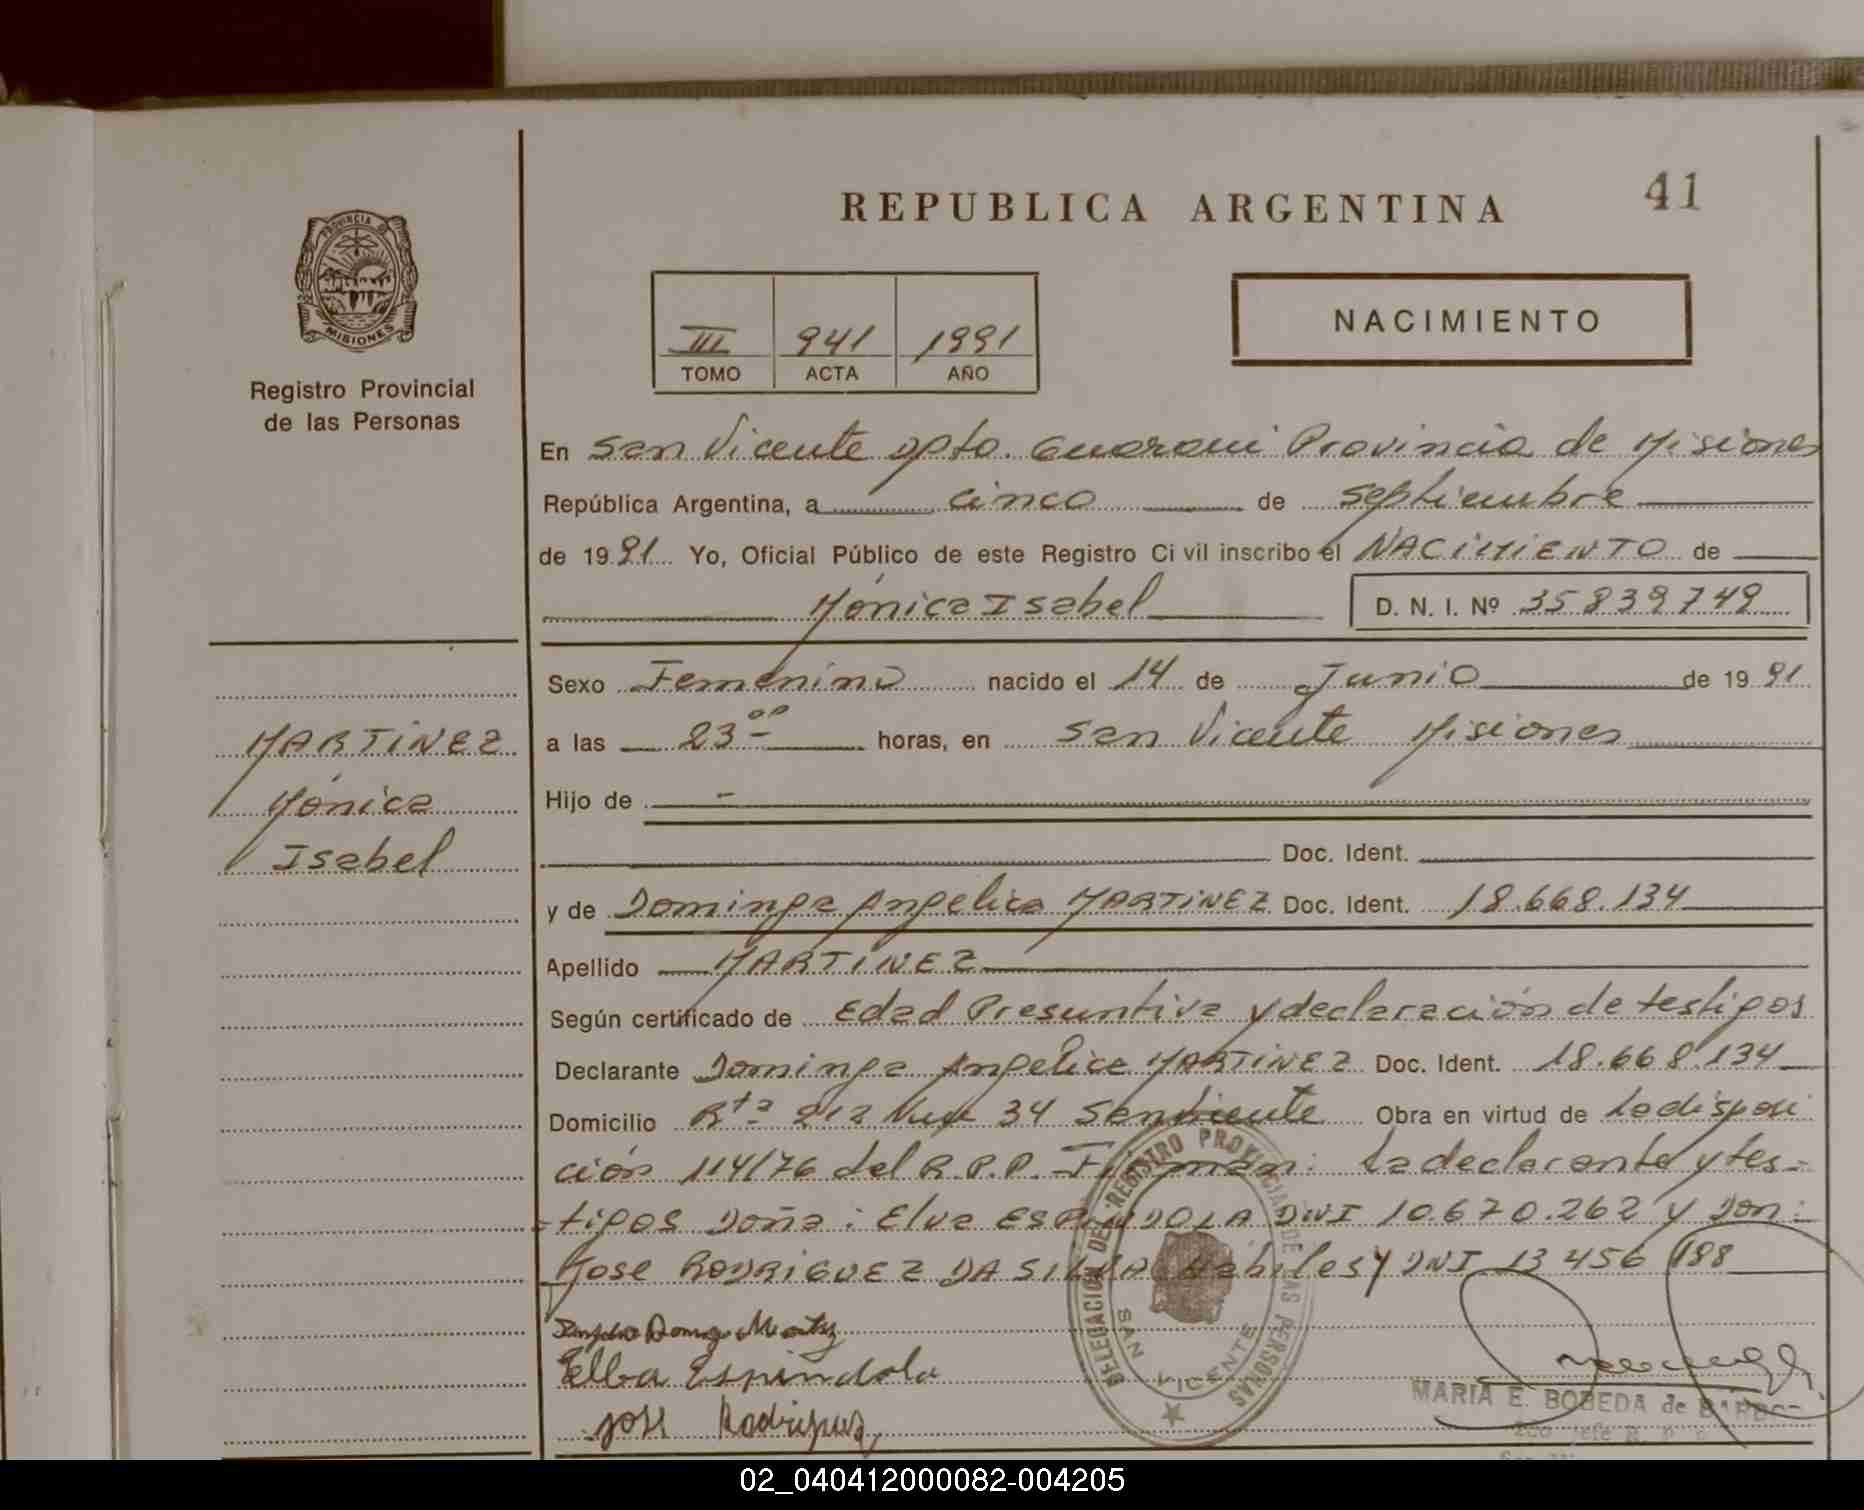 REPUBLICA ARGENTINA
41
PROVINCIA DE
MISIONES
Registro Provincial
de las Personas
III 941 1991
TOMO ACTA AÑO
NACIMIENTO
En San Vicente Dpto. Guarani Provincia de Misiones
República Argentina, a cinco de septiembre
de 1991 Yo, Oficial Público de este Registro Civil inscribo el NACIMIENTO de
Mónica Isabel D. N. I. Nº 35839749
Sexo Femenino nacido el 14 de Junio de 1991
MARTINEZ
Mónica
Isabel
a las 23 00 horas, en San Vicente Misiones
Hijo de -
Doc. Ident.
y de Dominga Angelica MARTINEZ Doc. Ident. 18.668.134
Apellido MARTINEZ
Según certificado de Edad Presuntiva y declaración de testigos
Declarante Dominga Angelica MARTINEZ Doc. Ident. 18.668.134
Domicilio Rta 212 34 San Vicente Obra en virtud de la disposi
ción 114/76 del R.P.P. Firman: la declarante y tes-
tigos Doña: Elva ESPINDOLA DNI 10.670.262 y Don:
Jose RODRIGUEZ DA SILVA Habiles y DNI 13 456 188
Elba Espindola
José Rodriguez
DELEGACION DEL REGISTRO PROVINCIAL DE LAS PERSONAS
SAN VICENTE
MARIA E. BOBEDA de
02_040412000082-004205